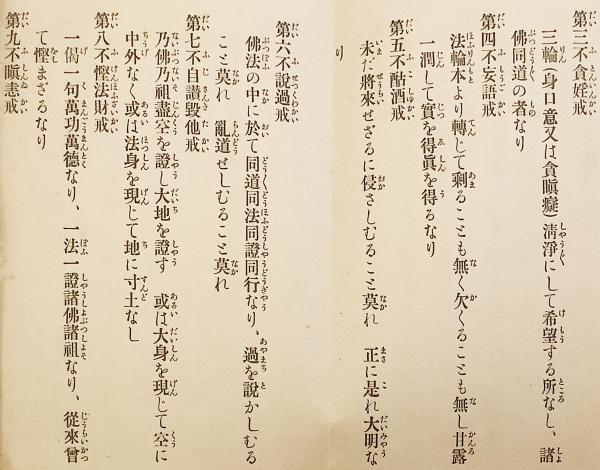 第三不貪婬戒
三輪(身口意又は貪瞋癡)清淨にして希望する所なし、諸
佛同道の者なり
第四不妄語戒
法輪本より轉じて剩ることも無く欠くることも無し甘露
一潤して實を得眞を得るなり
第五不酤酒戒
未だ將來せざるに侵さしむること莫れ 正に是れ大明な
り
第六不說過戒
佛法の中に於て同道同法同證同行なり、過を說かしむる
こと莫れ 亂道せしむること莫れ
第七不自讃毀他戒
乃佛乃祖盡空を證し大地を證す 或は大身を現じて空に
中外なく或は法身を現じて地に寸土なし
第八不慳法財戒
一偈一句萬功萬德なり、一法一證諸佛諸祖なり、從來曾
て慳まざるなり
第九不瞋恚戒